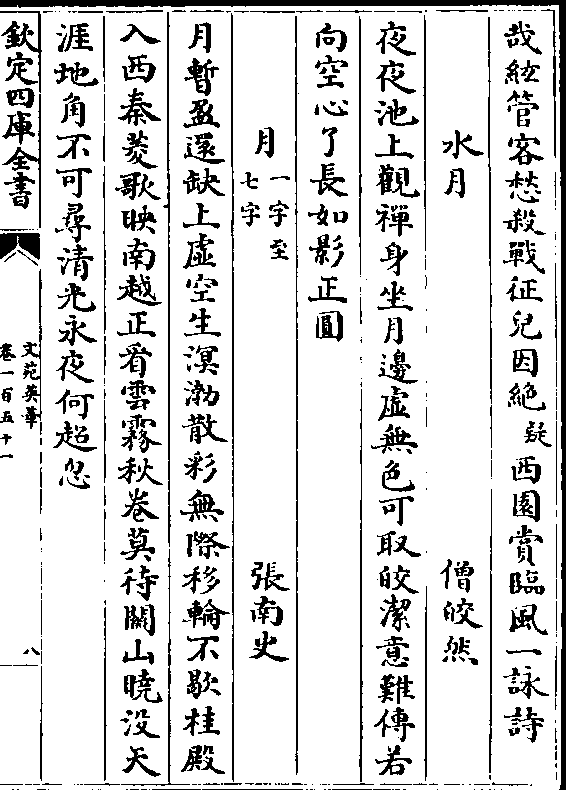 哉絃管客愁殺戰征兒因絶疑西園賞臨風一詠詩
水月 僧皎然
夜夜池上觀禪身坐月邊虛無色可取皎潔意難傳若
向空心了長如影正圓
月一字至七字 張南史
月暫盈還缺上虛空生溟渤散彩無際移輪不歇桂殿
入西秦菱歌映南越正看雲霧秋卷莫待關山曉没天
涯地角不可尋清光永夜何超忽
欽定四庫全書
文苑英華
卷一百五十一
八